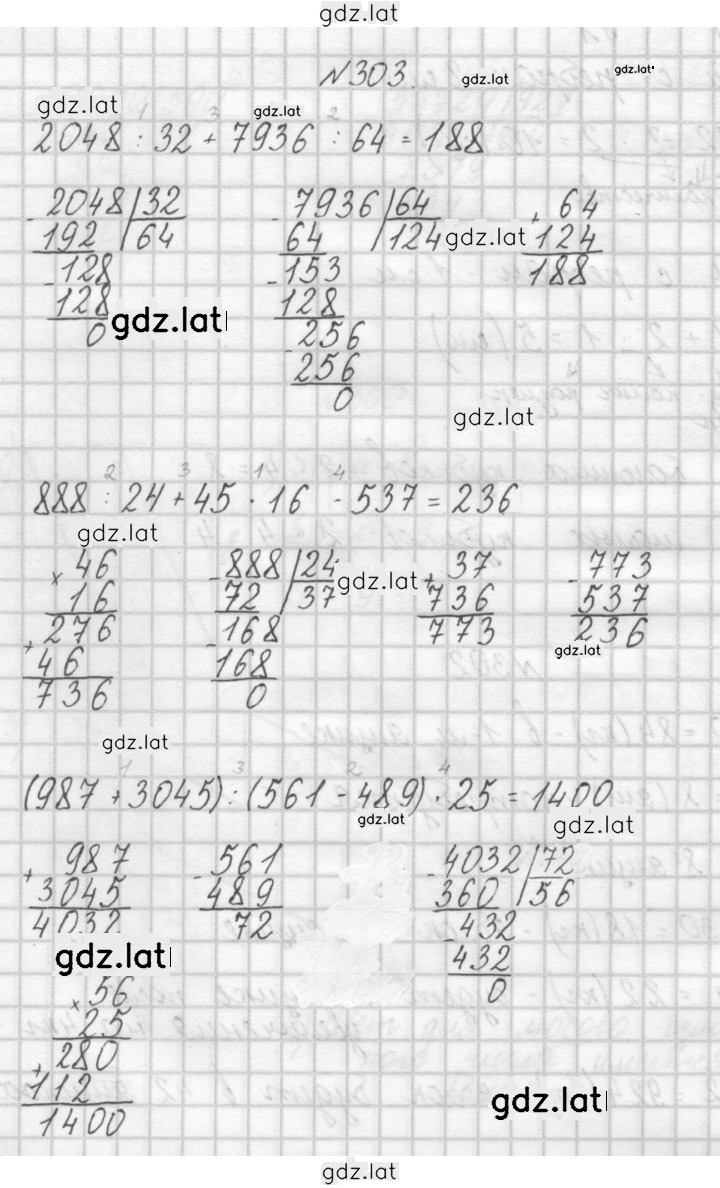 gdz.lat
№303.
gdz.lat
gdz.lat
gdz.lat
gdz.lat
1 3 2
2048 : 32 + 7936 : 64 = 188
- 2048 | 32
192 | 64
- 128
128
0
gdz.lat
- 7936 | 64
64 | 124
- 153
128
- 256
256
0
gdz.lat
+ 64
124
188
gdz.lat
2 3 1 4
888 : 24 + 45 · 16 - 537 = 236
gdz.lat
× 46
16
276
+ 46
736
- 888 | 24
72 | 37
- 168
168
0
gdz.lat
+ 37
736
773
- 773
537
236
gdz.lat
gdz.lat
1 3 2 4
(987 + 3045) : (561 - 489) · 25 = 1400
gdz.lat
gdz.lat
+ 987
3045
4032
- 561
489
72
- 4032 | 72
360 | 56
- 432
432
0
gdz.lat
× 56
25
280
+ 112
1400
gdz.lat
gdz.lat